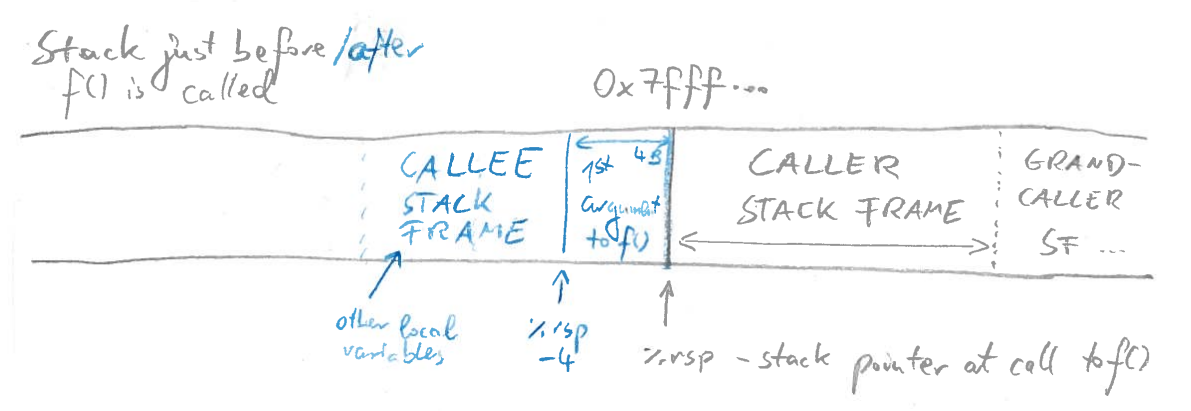 Stack just before/after
f() is called
0x7fff...
CALLEE
STACK
FRAME
4B
1st
argument
to f()
CALLER
STACK FRAME
GRAND-
CALLER
SF ...
other local
variables
%rsp
-4
%rsp - stack pointer at call to f()